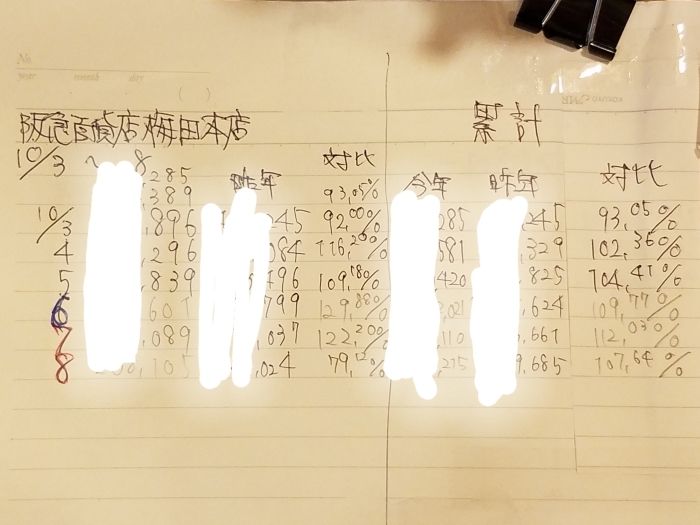 No.
year month day
( )
阪急百貨店梅田本店 累計
10/3 ~ 8 対比
,285 昨年 今年 昨年 対比
,389 93,05%
10/3 ,896 245 92,00% 285 245 93,05%
4 ,296 084 116,20% 581 ,329 102,36%
5 ,839 496 109,18% 420 ,825 104,41%
6 601 799 129,88% ,021 ,624 109,77%
7 ,089 ,037 122,20% ,110 ,661 112,03%
8 ,105 ,024 79,12% ,215 9,685 107,64%